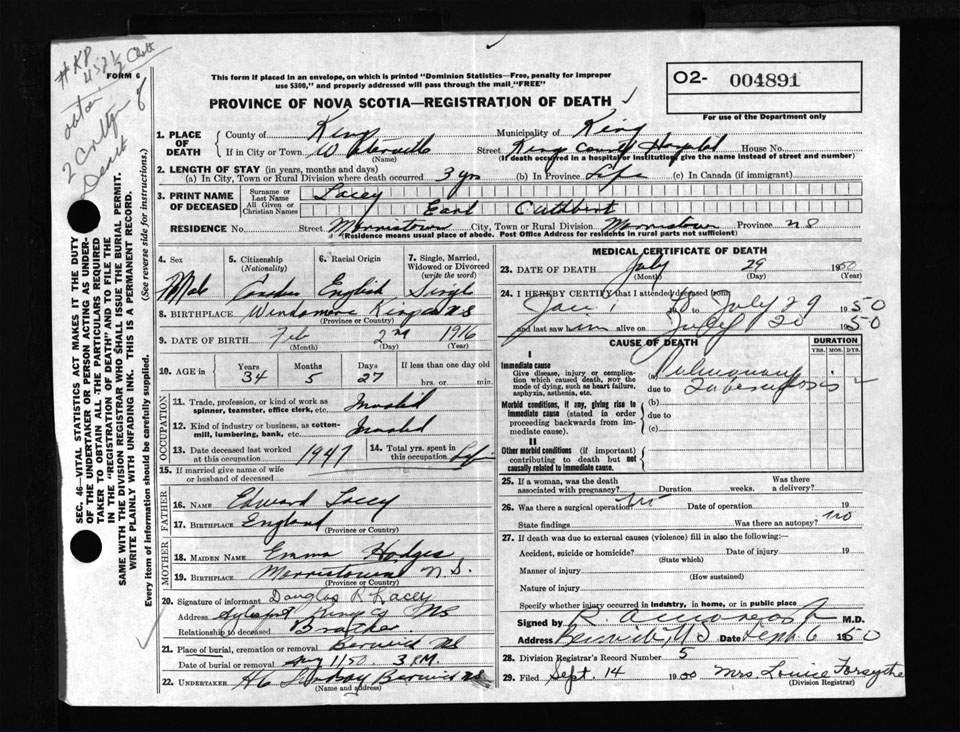 FORM 6
This form if placed in an envelope, on which is printed "Dominion Statistics—Free, penalty for improper
use $300," and properly addressed will pass through the mail "FREE"
O2- 004891
For use of the Department only
PROVINCE OF NOVA SCOTIA—REGISTRATION OF DEATH
1. PLACE OF DEATH
County of Kings Municipality of Kings
If in City or Town Waterville Street Kings County Hospital House No.
(Name) (If death occurred in a hospital or institution, give the name instead of street and number)
2. LENGTH OF STAY (in years, months and days)
(a) In City, Town or Rural Division where death occurred 3 yrs (b) In Province Life (c) In Canada (if immigrant)
3. PRINT NAME OF DECEASED
Surname or Last Name Lacey
All Given or Christian Names Earl Cuthbert
RESIDENCE No. Street Morristown City, Town or Rural Division Morristown Province NS
(Residence means usual place of abode. Post Office Address for residents in rural parts not sufficient)
4. Sex 5. Citizenship (Nationality) 6. Racial Origin 7. Single, Married, Widowed or Divorced (write the word)
Male English Single
8. BIRTHPLACE Kings NS
(Province or Country)
9. DATE OF BIRTH Feb 2nd 1916
(Month) (Day) (Year)
10. AGE in Years Months Days If less than one day old
34 5 27 hrs. or min.
OCCUPATION
11. Trade, profession, or kind of work as spinner, teamster, office clerk, etc. Invalid
12. Kind of industry or business, as cotton-mill, lumbering, bank, etc. Invalid
13. Date deceased last worked at this occupation 1947 14. Total yrs. spent in this occupation Life
15. If married give name of wife or husband of deceased
FATHER
16. Name Edward Lacey
17. Birthplace England
(Province or Country)
MOTHER
18. Maiden Name Emma Hodges
19. Birthplace Morristown N.S.
(Province or Country)
20. Signature of informant Douglas R Lacey
Address Aylesford Kings Co NS
Relationship to deceased Brother
21. Place of burial, cremation or removal Berwick NS
Date of burial or removal 1/50 3 P.M.
22. UNDERTAKER Lindsay Berwick NS
(Name and address)
MEDICAL CERTIFICATE OF DEATH
23. DATE OF DEATH July 29 1950
(Month) (Day) (Year)
24. I HEREBY CERTIFY that I attended deceased from
Jan 1 to July 29 1950
and last saw him alive on July 20 1950
CAUSE OF DEATH DURATION
YRS. MOS. DYS.
I
Immediate cause
Give disease, injury or complication which caused death, not the mode of dying, such as heart failure, asphyxia, asthenia, etc.
(a) Pulmonary
due to Tuberculosis
Morbid conditions, if any, giving rise to immediate cause (stated in order proceeding backwards from immediate cause).
(b)
due to
(c)
II
Other morbid conditions (if important) contributing to death but not causally related to immediate cause.
25. If a woman, was the death associated with pregnancy? Duration weeks. Was there a delivery?
26. Was there a surgical operation? Date of operation 19
State findings Was there an autopsy? no
27. If death was due to external causes (violence) fill in also the following:—
Accident, suicide or homicide? Date of injury 19
(State which)
Manner of injury
(How sustained)
Nature of injury
Specify whether injury occurred in industry, in home, or in public place
Signed by M.D.
Address Berwick, NS Date Sept 6 1950
28. Division Registrar's Record Number 5
29. Filed Sept. 14 1950 Mrs. Louise Forsythe
(Division Registrar)
SEC. 46—VITAL STATISTICS ACT MAKES IT THE DUTY
OF THE UNDERTAKER OR PERSON ACTING AS UNDERTAKER TO OBTAIN ALL THE PARTICULARS REQUIRED
IN THE "REGISTRATION OF DEATH" AND TO FILE THE
SAME WITH THE DIVISION REGISTRAR WHO SHALL ISSUE THE BURIAL PERMIT.
WRITE PLAINLY WITH UNFADING INK. THIS IS A PERMANENT RECORD.
Every item of information should be carefully supplied. (See reverse side for instructions.)